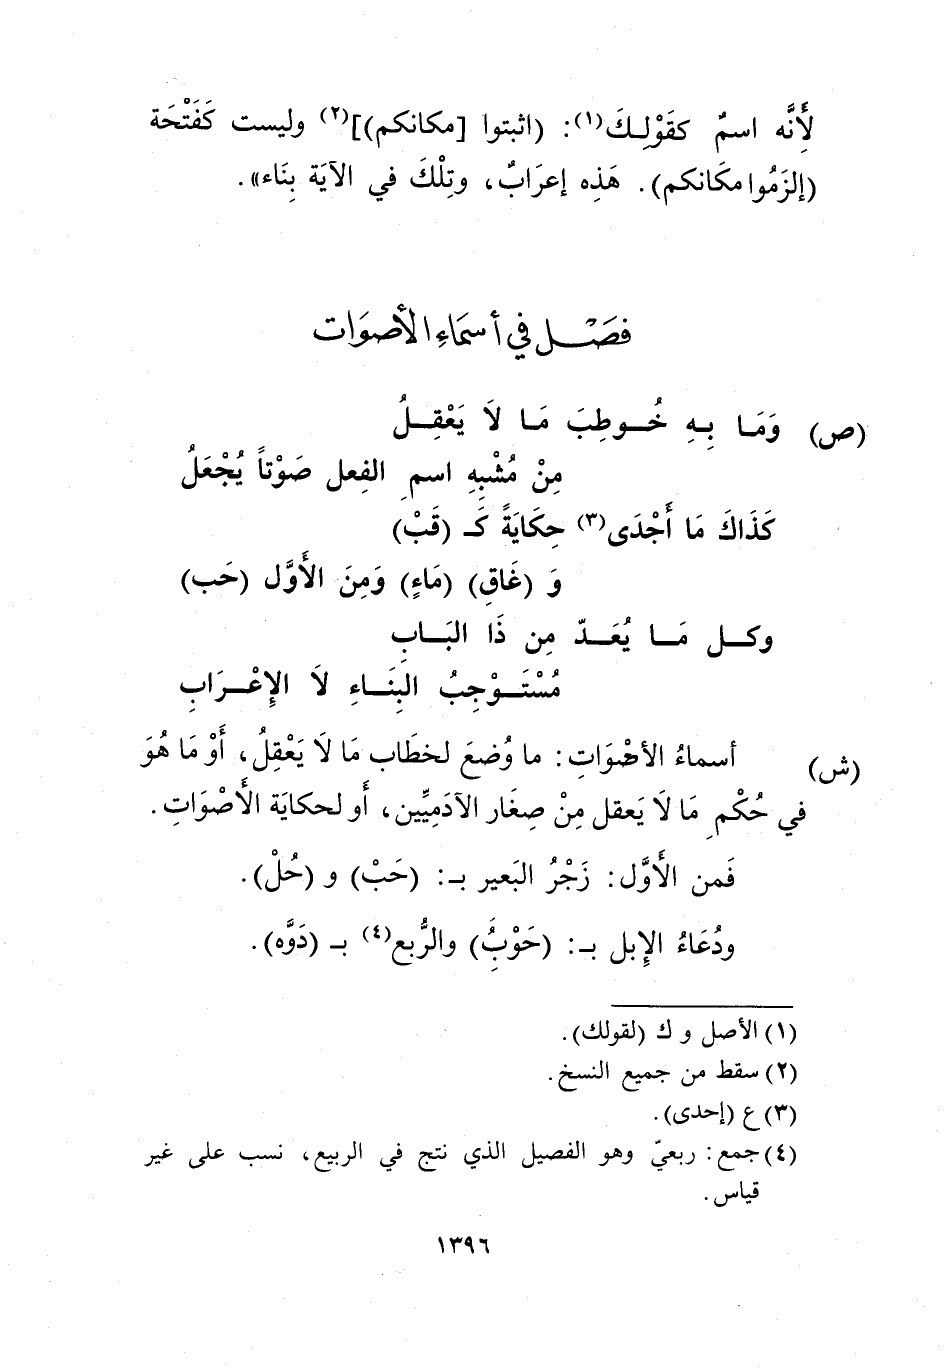 لأَنَّه اسمٌ كقَوْلِكَ(١): (اثبتوا [مكانكم)](٢) وليست كَفَتْحَة
(إلزَمُوا مكَانكم). هَذِه إعرَابٌ، وتِلْكَ في الآيَة بِنَاء».
فصَل في أسمَاءِ الأصوَات
(ص) وَمَا بِهِ خُوطِبَ مَا لَا يَعْقِلُ
مِنْ مُشْبِهِ اسمِ الفِعل صَوْتاً يُجْعَلُ
كَذَاكَ مَا أَجْدَى(٣) حِكَايَةً كَـ (قَبْ)
وَ (غَاقِ) (مَاءٍ) وَمِنَ الأَوَّل (حَب)
وكل مَا يُعَدّ مِن ذَا البَابِ
مُسْتَوْجِبُ البِنَاءِ لَا الإِعْرَابِ
(ش) أسماءُ الأصْوَاتِ: ما وُضعَ لخطَاب مَا لَا يَعْقِلُ، أَوْ مَا هُوَ
في حُكْمِ مَا لَا يَعقل مِنْ صِغَار الآدَمِيِّين، أَو لحكايَة الأَصْوَاتِ.
فَمن الأَوَّل: زَجْرُ البَعير بـ: (حَبْ) و (حُلْ).
ودُعَاءُ الإِبل بـ: (حَوْبَُِ) والرُّبع(٤) بـ (دَوَّه).
(١) الأصل و ك (لقولك).
(٢) سقط من جميع النسخ.
(٣) ع (إحدى).
(٤) جمع: ربعيّ وهو الفصيل الذي نتج في الربيع، نسب على غير
قياس.
١٣٩٦